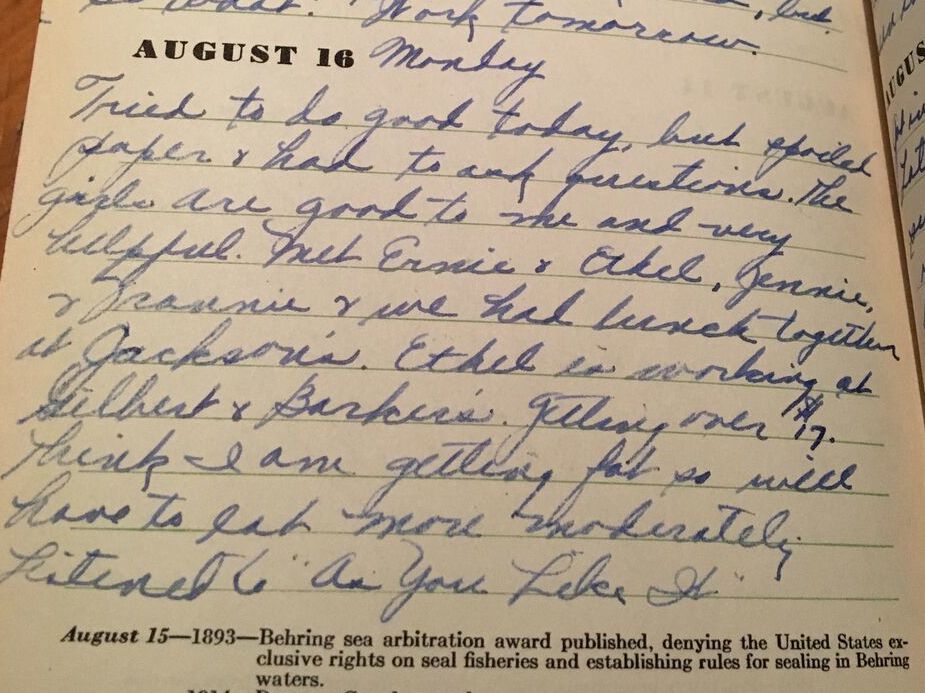 so what? Work tomorrow. , but
AUGUST 16 Monday
Tried to do good today, but spoiled
paper & had to ask questions. The
girls are good to me and very
helpful. Met Ernie & Ethel, Jennie,
& Frannie & we had lunch together
at Jackson's. Ethel is working at
Gilbert & Barker's. Getting over $17.
Think I am getting fat so will
have to eat more moderately
Listened to "As You Like It"
August 15—1893—Behring sea arbitration award published, denying the United States ex-
clusive rights on seal fisheries and establishing rules for sealing in Behring
waters.